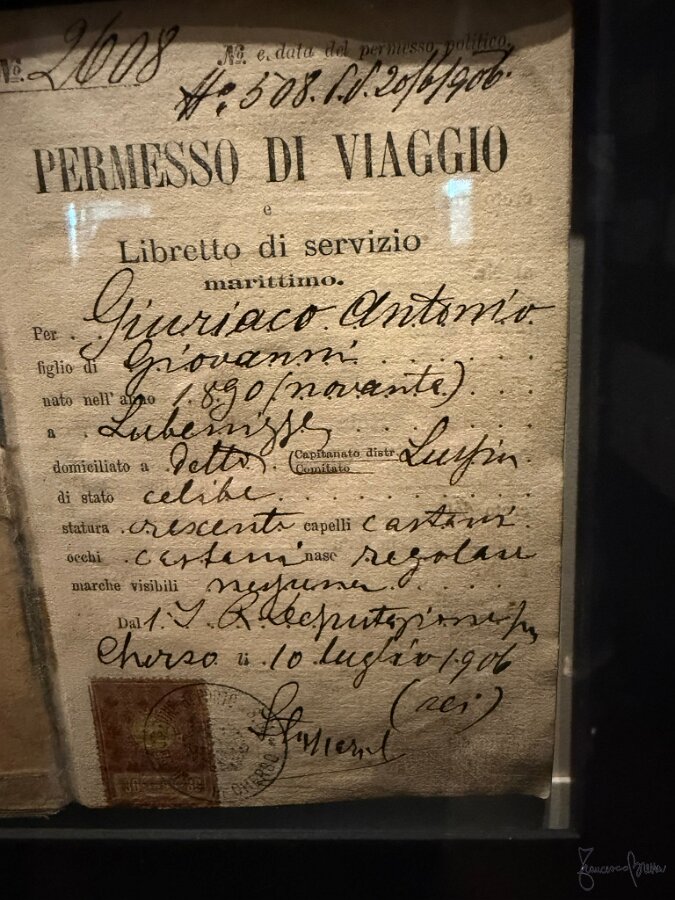 No. 2608
No. e data del permesso politico.
No. 508. d.d. 20/6/1906.
PERMESSO DI VIAGGIO
e
Libretto di servizio
marittimo.
Per Giuriaco Antonio
figlio di Giovanni
nato nell'anno 1890 (novanta)
a Lubenizze
domiciliato a detto (Capitanato distr. Lussin
Comitato
di stato celibe
statura crescente capelli castani
occhi castani naso regolare
marche visibili nessuna
Dall' I. R. Deputazione
Cherso li 10 luglio 1906
(sei)
CHERSO
Francesco